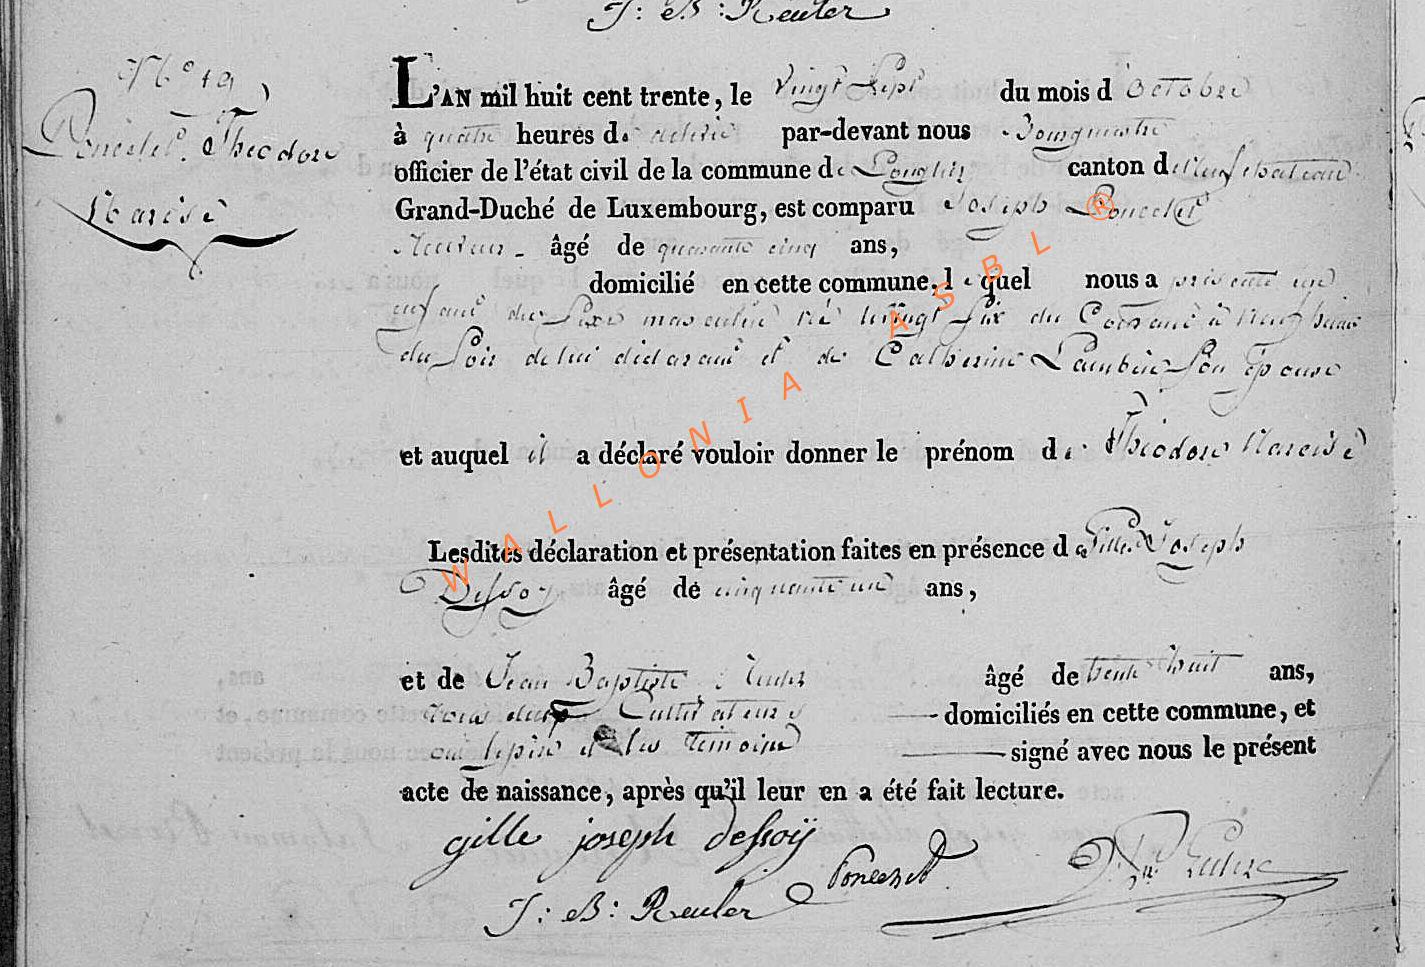 J: B: Reuler
N° 19
Poncelet Théodore
Narcisse
L'AN mil huit cent trente, le Vingt Sept du mois d'Octobre
à quatre heures de par-devant nous Bourgmestre
officier de l'état civil de la commune de Longlier canton de Neufchateau
Grand-Duché de Luxembourg, est comparu Joseph Poncelet
âgé de quarante cinq ans,
domicilié en cette commune, lequel nous a présenté un
enfant du Sexe masculin né le Vingt Six du Courant à neuf heures
du Soir de lui déclarant et de Catherine Lambin Son épouse
et auquel il a déclaré vouloir donner le prénom de Théodore Narcisse
Lesdites déclaration et présentation faites en présence de Gille Joseph
Dessoy âgé de cinquante un ans,
et de Jean Baptiste Reuler âgé de trente huit ans,
tous deux Cultivateurs domiciliés en cette commune, et
ont le père et les témoins signé avec nous le présent
acte de naissance, après qu'il leur en a été fait lecture.
gille joseph dessoÿ
Poncelet
J: B: Reuler
WALLONIA ASBL ®